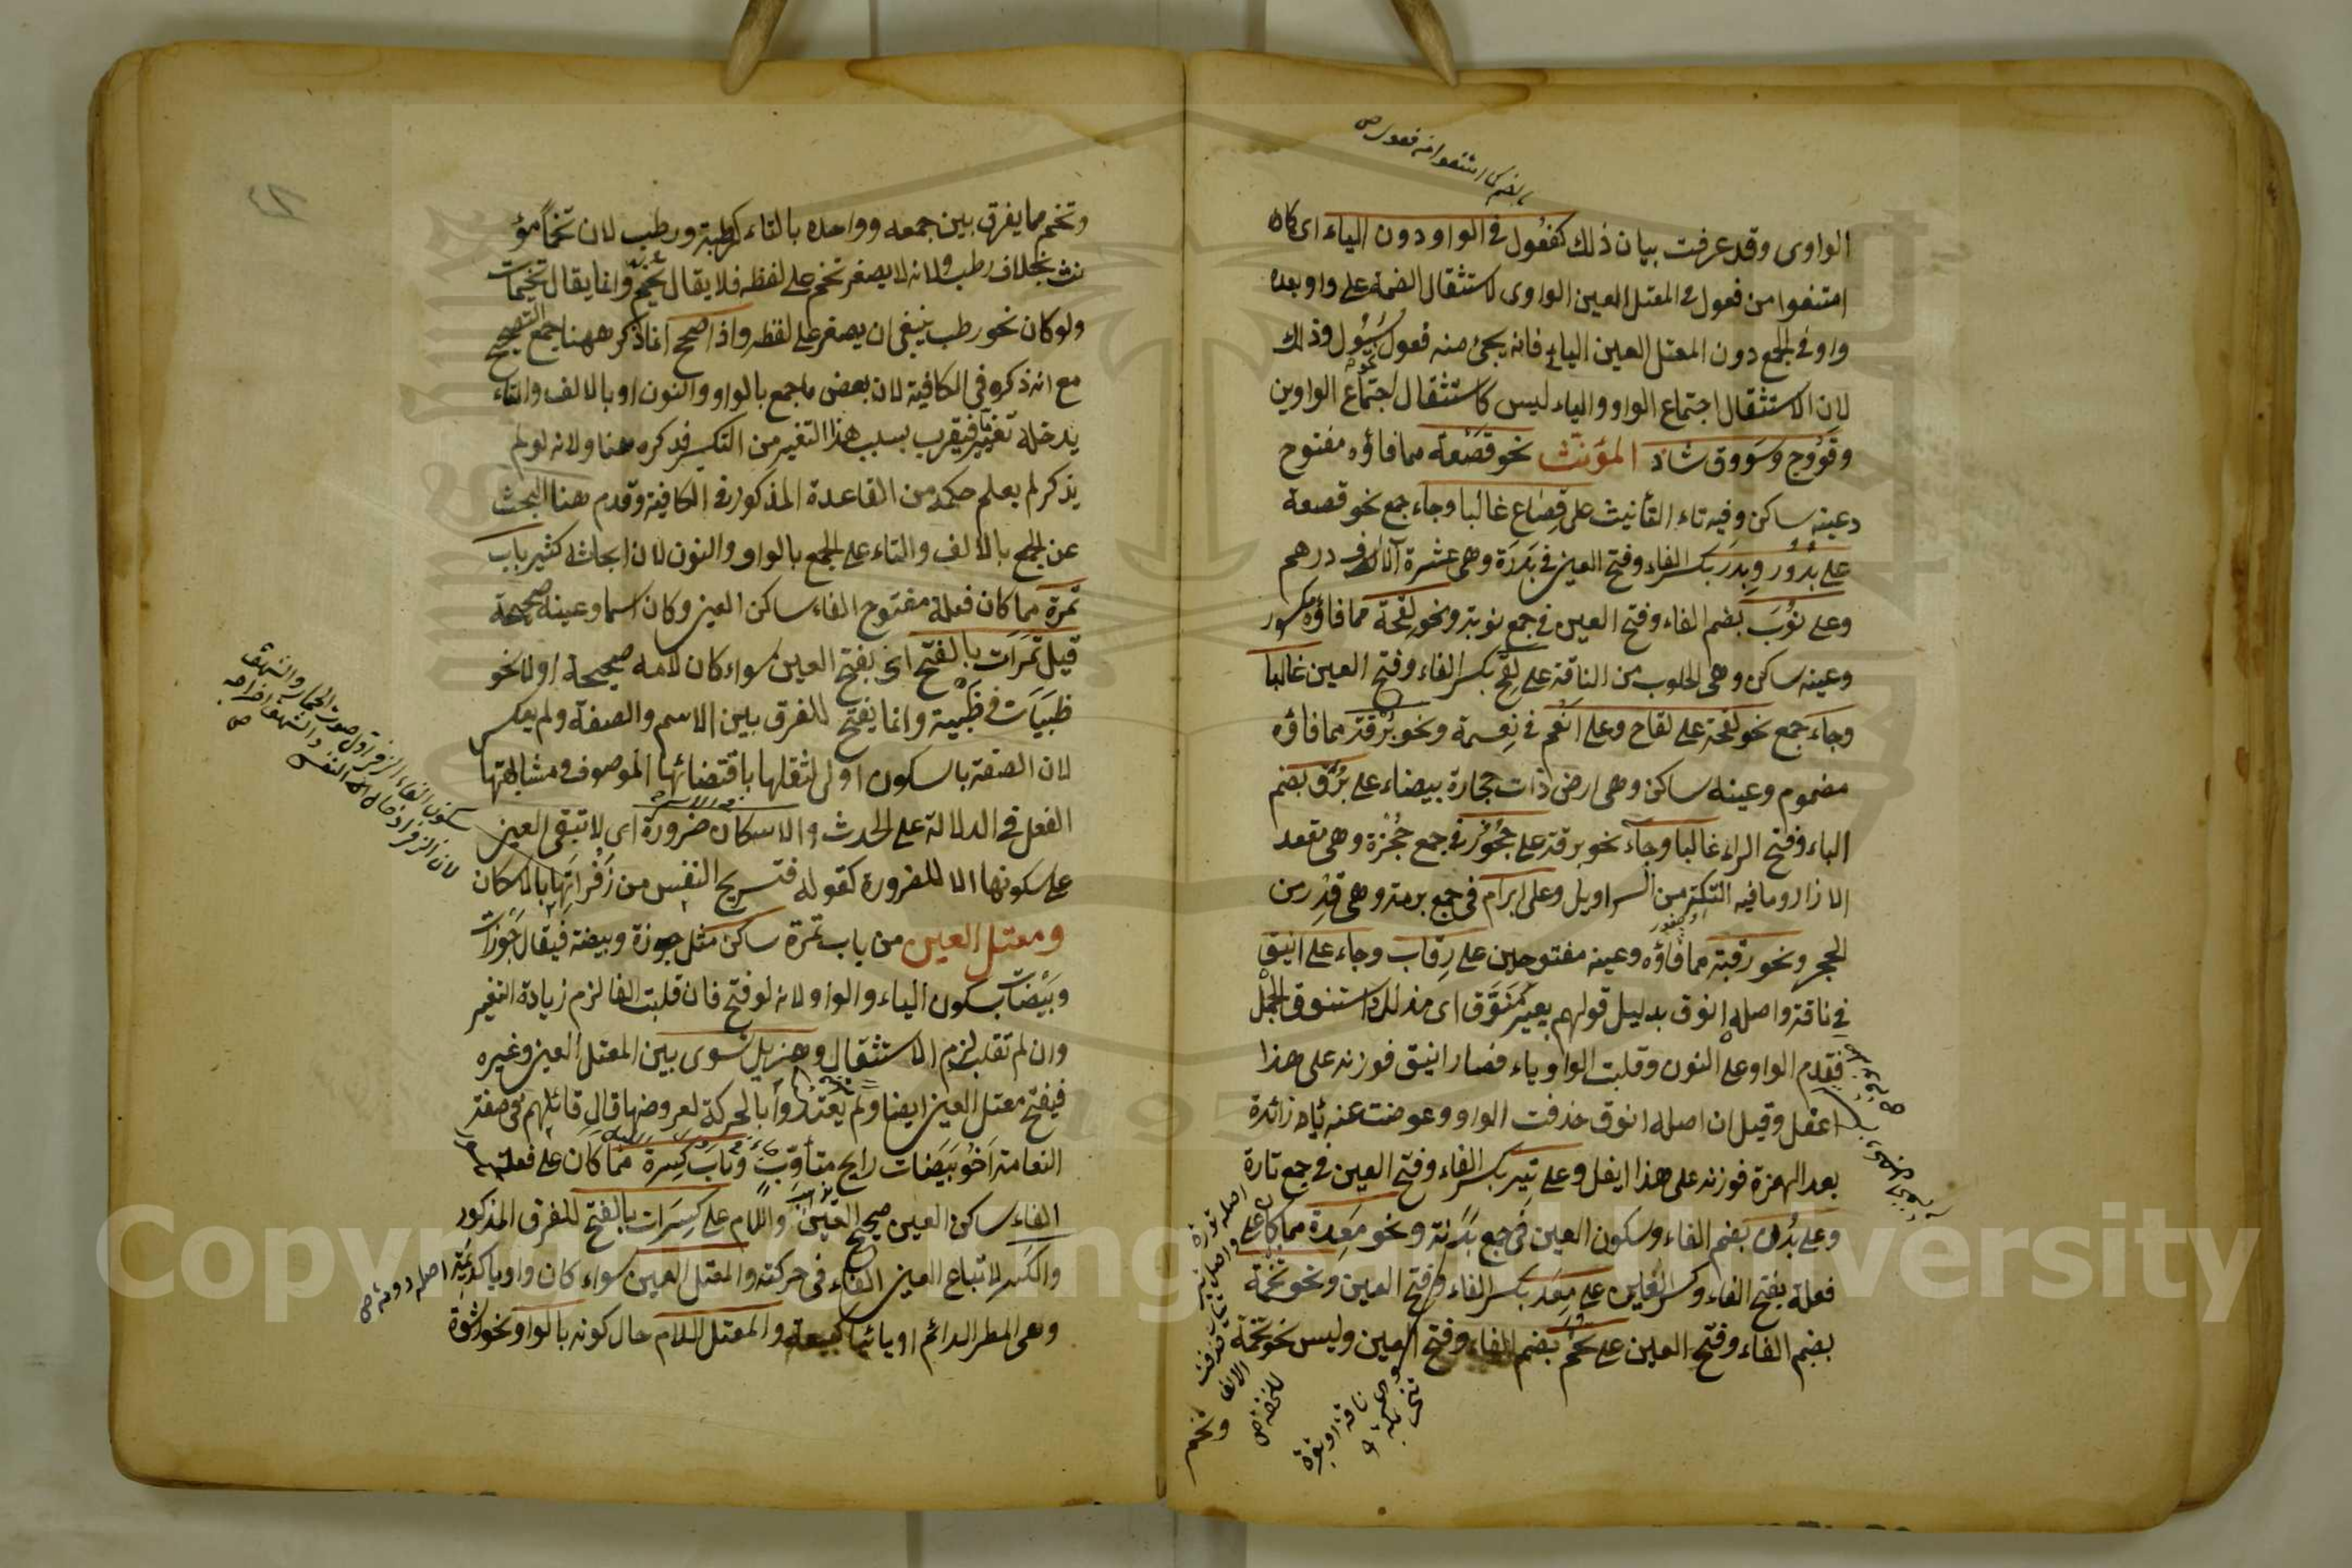 الواوى وقد عرفت بيان ذلك كفعُول فى الواو دون الياء اى كان
امتنعوا من فعول فى المعتل العين الواوى لاستثقال الضمة على واو بعده
واو فى الجمع دون المعتل العين اليائى فانه يجئ منه فعول كسُيُول وذلك
لان الاستثقال اجتماع الواو والياء ليس كاستثقال اجتماع الواوين
وفَوُوج وسَووق شاذ المؤنث نحو قصْعة مما فاؤه مفتوح
وعينه ساكن وفيه تاء التأنيث على قِصَاع غالبا وجاء جمع نحو قصعة
على بدُوُر وبِدَر بكسر الفاء وفتح العين فى بَدْرَة وهى عشرة آلاف درهم
وعلى نُوَب بضم الفاء وفتح العين فى جمع نوبة ونحو لِقْحَة مما فاؤه مكسور
وعينه ساكن وهى الحلوب من الناقة على لِقَح بكسر الفاء وفتح العين غالبا
وجاء جمع نحو لقحة على لقاح وعلى انعُم فى نِعمة ونحو بُرْقة مما فاؤه
مضموم وعينه ساكن وهى ارض ذات حجارة بيضاء على بُرَق بضم
الباء وفتح الراء غالبا وجاء نحو برقة على حُجُوز فى جمع حُجْزة وهى مقعد
الازار وما فيه التكة من السراويل وعلى برام فى جمع برمة وهى قِدْر من
الحجر ونحو رقبة مما فاؤه وعينه مفتوحين على رِقاب وجاء على انيق
فى ناقة واصله انوق بدليل قولهم بعير مُنَوَّق اى مذلل واستنوق الجمل
فقدم الواو على النون وقلبت الواو ياء فصار انيق فوزنه على هذا
اعفل وقيل ان اصله انوق حذفت الواو وعوضت عنه ياء زائدة
بعد الهمزة فوزنه على هذا ايفل وعلى تِيَر بكسر الفاء وفتح العين فى جمع تارة
وعلى بُدْن بضم الفاء وسكون العين فى جمع بَدَنة ونحو مَعِدة مما كان على
فعلة بفتح الفاء وكسر العين على مِعَد بكسر الفاء وفتح العين ونحو تُخَمة
بضم الفاء وفتح العين على تُخَم بضم الفاء وفتح العين وليس نحو تخمة
وتخم
وتخم مما يفرق بين جمعه وواحده بالتاء كرطبة ورطب لان تخمًا مؤ
نث بخلاف رطب ولانه لا يصغر تخم على لفظه فلا يقال تخيم وانما يقال تخيمات
ولو كان نحو رطب ينبغى ان يصغر على لفظه واذا صحح انما ذكر ههنا جمع التصحيح
مع انه ذكره فى الكافية لان بعض ما جمع بالواو والنون او بالالف والتاء
يدخله تغيير فيقرب بسبب هذا التغير من التكسير فذكره هنا ولانه لو لم
يذكر لم يعلم حكمه من القاعدة المذكور فى الكافية وقدم هنا البحث
عن الجمع بالالف والتاء على الجمع بالواو والنون لان ابحاثه كثير باب
تمرة مما كان فعلة مفتوح الفاء ساكن العين وكان اسما وعينه صحيحة
قيل تمَرات بالفتح اى بفتح العين سواء كان لامه صحيحة اولا نحو
ظبيَات فى ظَبْية وانما يفتح للفرق بين الاسم والصفة ولم يعكس
لان الصفة بالسكون اولى لثقلها باقتضائها الموصوف ومشابهتها
الفعل فى الدلالة على الحدث والاسكان ضرورة اى لا تبقى العين
على سكونها الا للضرورة كقوله فتستريح النفس من زَفْراتِها بالاسكان
ومعتل العين من باب تمرة ساكن مثل جوزة وبيضة فيقال جَوْزات
وبَيْضات بسكون الياء والواو لانه لو فتح فان قلبت الفا لزم زيادة التغير
وان لم تقلب لزم الاستثقال وهذيل تسوى بين المعتل العين وغيره
فيفتح معتل العين ايضا ولم يعتدوا بالحركة لعروضها قال قائلهم فى صفة
النعامة اَخُو بَيَضات رايح متأوّب وباب كِسرة مما كان على فعلة
الفاء ساكن العين صحيح العين واللام على كِسَرات بالفتح للفرق المذكور
والكسر لاتباع العين الفاء فى حركته والمعتل العين سواء كان واويا كديمة
وهى المطر الدائم او يائيا كبيعة والمعتل اللام حال كونه بالواو نحو رشوة